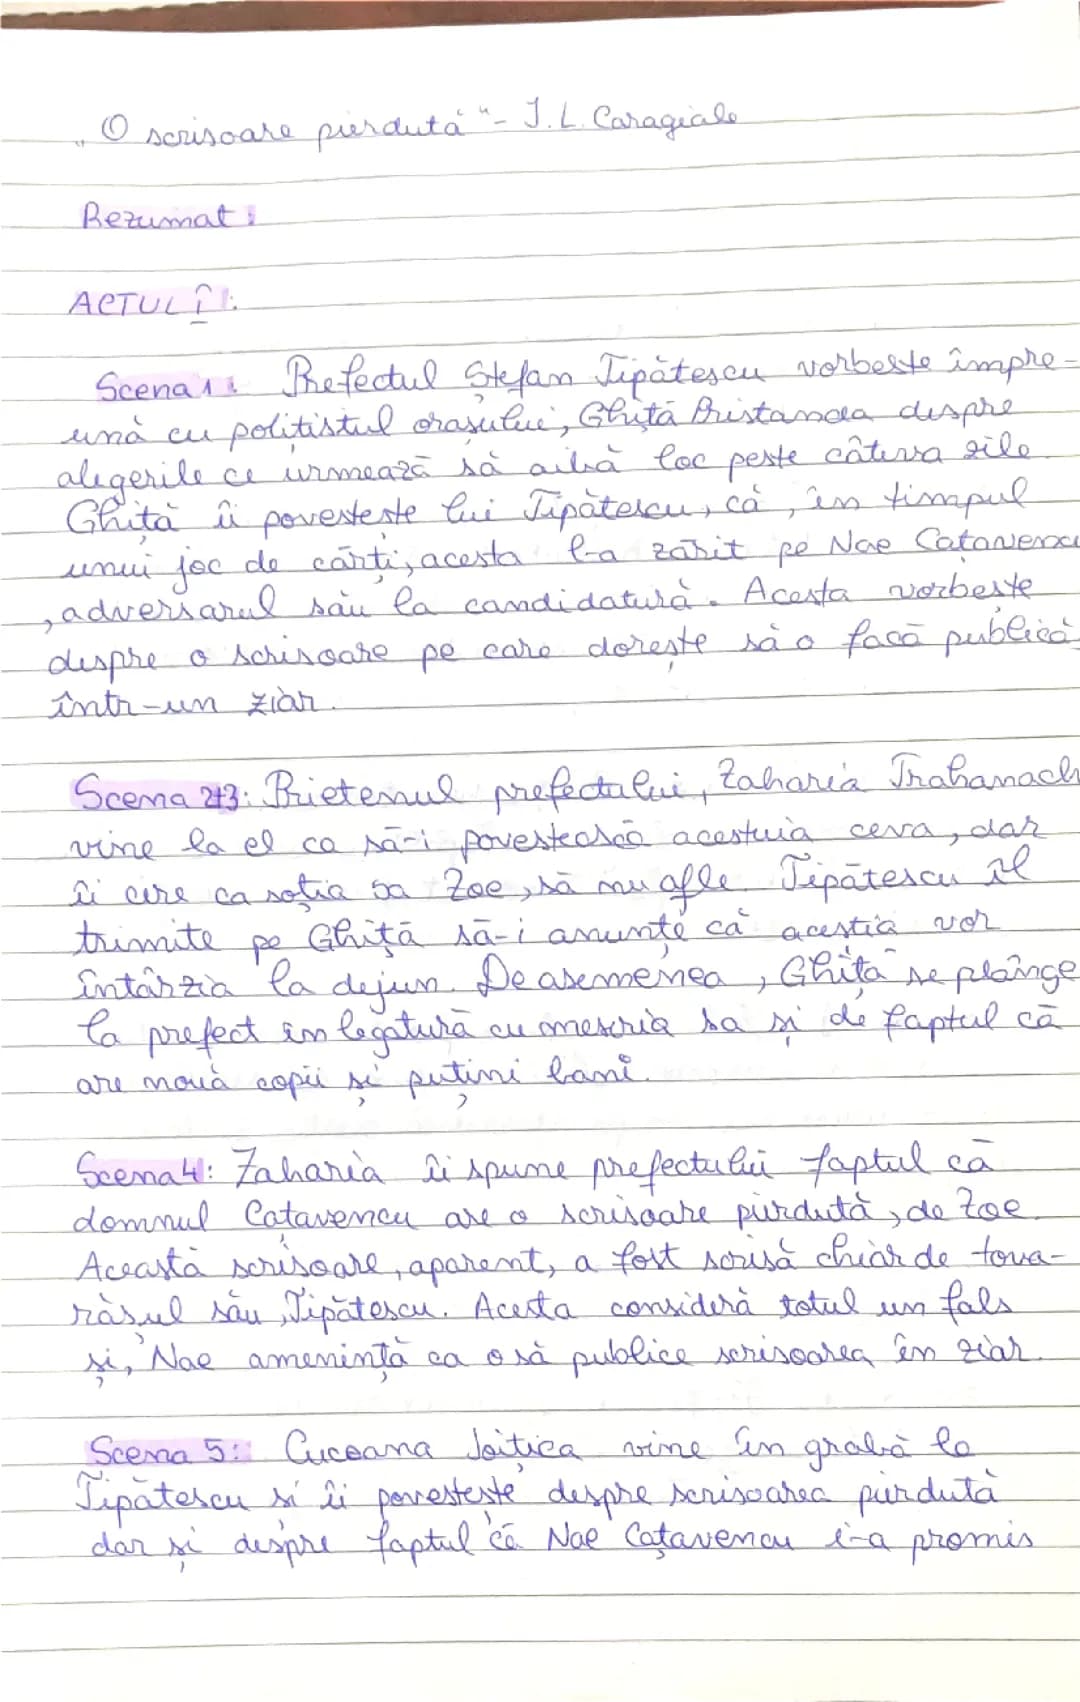 „O scrisoare pierdută" - I.L. Caragiale
Rezumat:
ACTUL I:
Scena 1: Prefectul Ștefan Tipătescu vorbește împre-
ună cu polițistul orașului, Ghiță Pristanda despre
alegerile ce urmează să aibă loc peste câteva zile.
Ghiță îi povestește lui Tipătescu, că, în timpul
unui joc de cărți, acesta l-a zărit pe Nae Cațavencu
, adversarul său la candidatură. Acesta vorbește
despre o scrisoare pe care dorește să o facă publică
într-un ziar.
Scena 2+3: Prietenul prefectului, Zaharia Trahanach
vine la el ca să-i povestească acestuia ceva, dar
îi cere ca soția sa Zoe, să nu afle. Tipătescu îl
trimite pe Ghiță să-i anunțe că aceștia vor
întârzia la dejun. De asemenea, Ghiță se plânge
la prefect în legatură cu meseria sa și de faptul că
are nouă copii și puțini bani.
Scena 4: Zaharia îi spune prefectului faptul că
domnul Catavencu are o scrisoare pierdută, de Zoe.
Această scrisoare, aparent, a fost scrisă chiar de tova-
rășul său, Tipătescu. Acesta consideră totul un fals
și, Nae amenință ca o să publice scrisoarea în ziar.
Scena 5: Cucoana Joițica vine în grabă la
Tipătescu și îi povestește despre scrisoarea pierdută
dar și despre faptul că Nae Cațavencu i-a promis